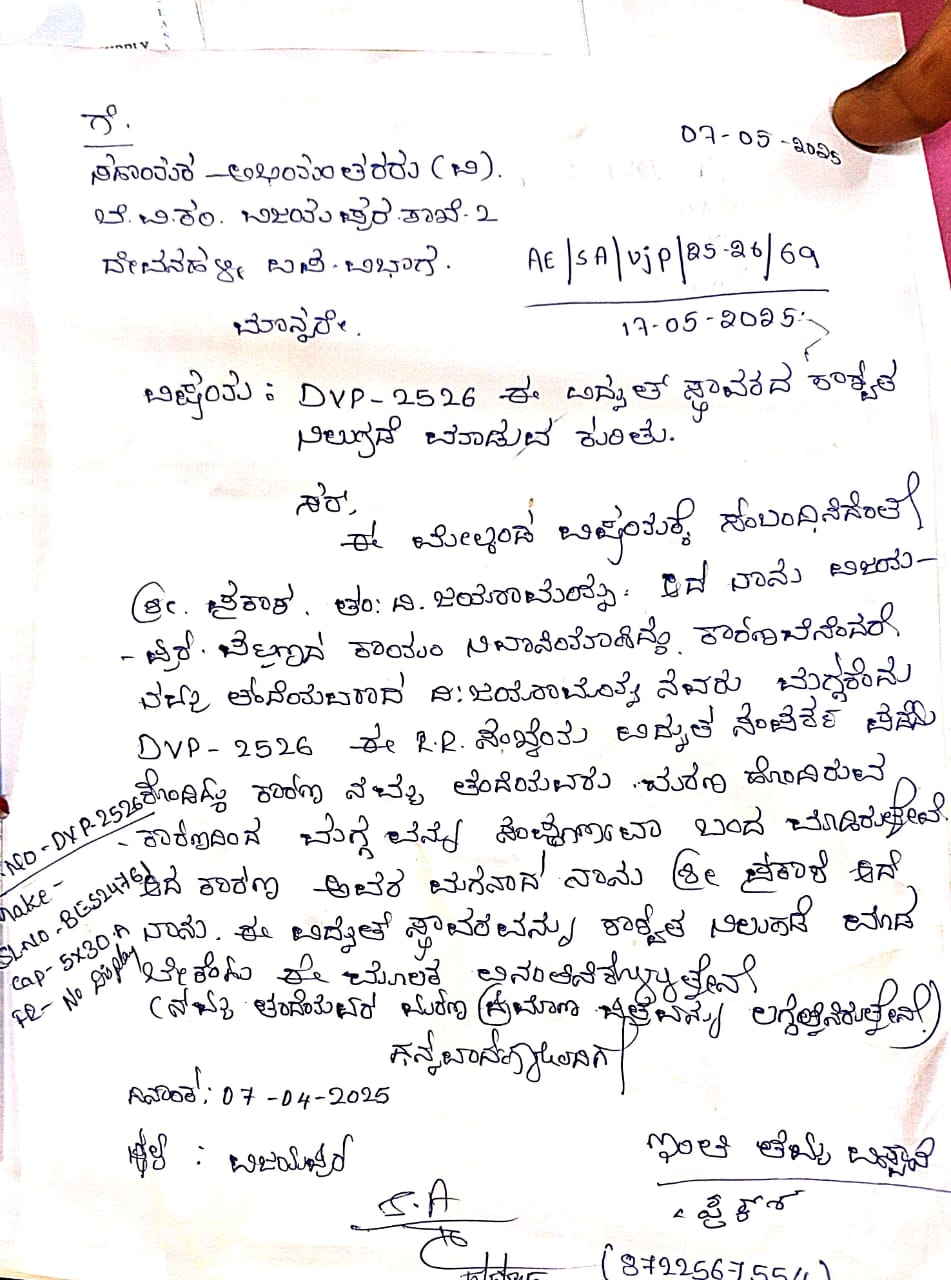 ಗೆ.
07-05-2025
ಸಹಾಯಕ ಅಭಿಯಂತರರು (ವಿ).
ಬೆ.ವಿ.ಕಂ. ವಿಜಯಪುರ ಶಾಖೆ-2
ದೇವನಹಳ್ಳಿ ಉಪ-ವಿಭಾಗ.
AE/SA/Vjp/25-26/69
17-05-2025
ಮಾನ್ಯರೇ.
ವಿಷಯ : DVP-2526 ಈ ವಿದ್ಯುತ್ ಸ್ಥಾವರದ ಶಾಶ್ವತ
ನಿಲುಗಡೆ ಮಾಡುವ ಕುರಿತು.
ಸರ್,
ಈ ಮೇಲ್ಕಂಡ ವಿಷಯಕ್ಕೆ ಸಂಬಂಧಿಸಿದಂತೆ
ಶ್ರೀ. ಪ್ರಕಾಶ. ತಂ: ವಿ. ಜಯರಾಮಯ್ಯ. ಆದ ನಾನು ವಿಜಯ-
-ಪುರ. ಪಟ್ಟಣದ ಖಾಯಂ ನಿವಾಸಿಯಾಗಿದ್ದು ಕಾರಣವೆನೆಂದರೆ
ನಮ್ಮ ತಂದೆಯವರಾದ ವಿ: ಜಯರಾಮಯ್ಯ ನವರು ಮಗ್ಗಕೆಂದು
DVP-2526 ಈ R.R. ಸಂಖ್ಯೆಯ ವಿದ್ಯುತ ಸಂಪರ್ಕ ಪಡೆದು
ಕೊಂಡಿದ್ದು ಕಾರಣ ನಮ್ಮ ತಂದೆಯವರು ಮರಣ ಹೊಂದಿರುವ
-ಕಾರಣದಿಂದ ಮಗ್ಗವನ್ನು ಸಂಪೂರ್ಣವಾ ಬಂದ ಮಾಡಿರುತ್ತೇವೆ.
ಆದ ಕಾರಣ ಅವರ ಮಗನಾದ ನಾನು ಶ್ರೀ ಪ್ರಕಾಶ ಆದ
ನಾನು. ಈ ವಿದ್ಯುತ್ ಸ್ಥಾವರವನ್ನು ಶಾಶ್ವತ ನಿಲುಗಡೆ ಮಾಡ
ಬೇಕೆಂದು ಈ ಮೂಲಕ ವಿನಂತಿಸಿಕೊಳ್ಳುತ್ತೇನೆ
(ನಮ್ಮ ತಂದೆಯವರ ಮರಣ ಪ್ರಮಾಣ ಪತ್ರವನ್ನು ಲಗ್ಗತ್ತಿಸಿರುತ್ತೇನೆ)
NO-DVP-2526
Make-
SLNO-BES24761
Cap-5X30A
FR-No Display
ದಿನಾಂಕ: 07-04-2025
ಸ್ಥಳ : ವಿಜಯಪುರ
ಇಂತಿ ತಮ್ಮ ವಿಶ್ವಾಸಿ
ಪ್ರಕಾಶ
S.A
(8722567554)